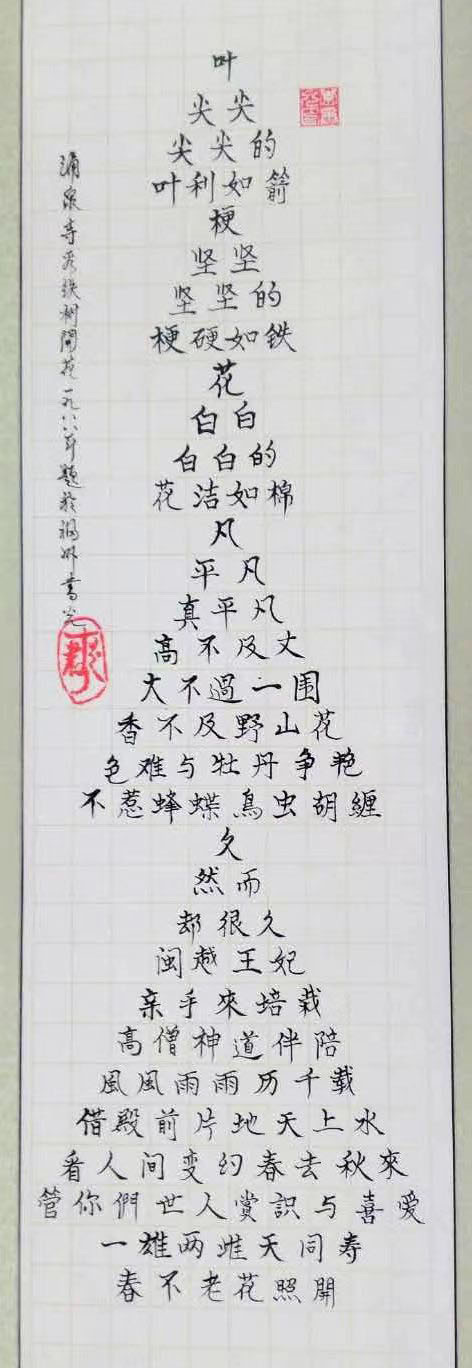 叶
尖尖
尖尖的
叶利如箭
梗
坚坚
坚坚的
梗硬如鉄
花
白白
白白的
花洁如棉
凡
平凡
真平凡
高不及丈
大不過一围
香不及野山花
色难与牡丹争艳
不惹蜂蝶鳥虫胡缠
久
然而
却很久
闽越王妃
亲手來培栽
高僧神道伴陪
風風雨雨历千载
借殿前片地天上水
看人间变幻春去秋來
管你們世人赏識与喜爱
一雄两雌天同寿
春不老花照開
涌泉寺观鉄树開花一九八八年題於福州